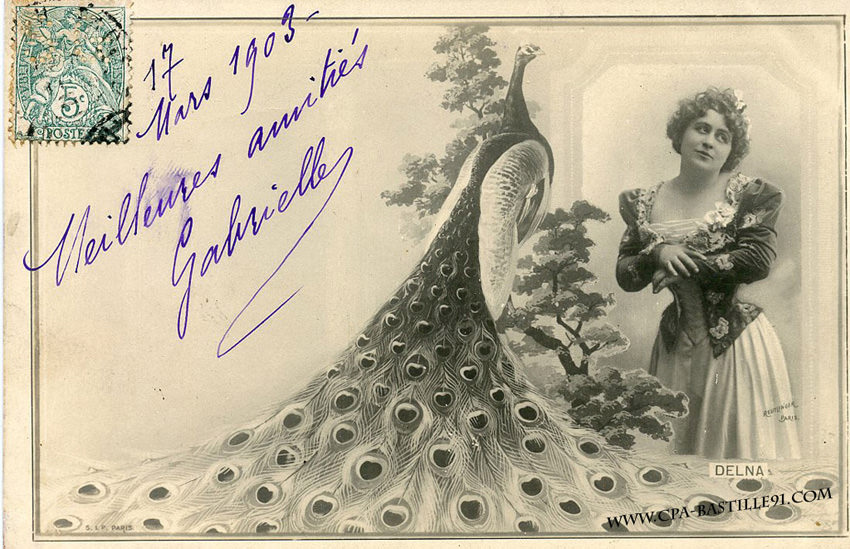 17
Mars 1903-
Meilleures amitiés
Gabrielle
5
POSTES
REUTLINGER
PARIS.
DELNA
S. I. P. PARIS.
WWW.CPA-BASTILLE91.COM